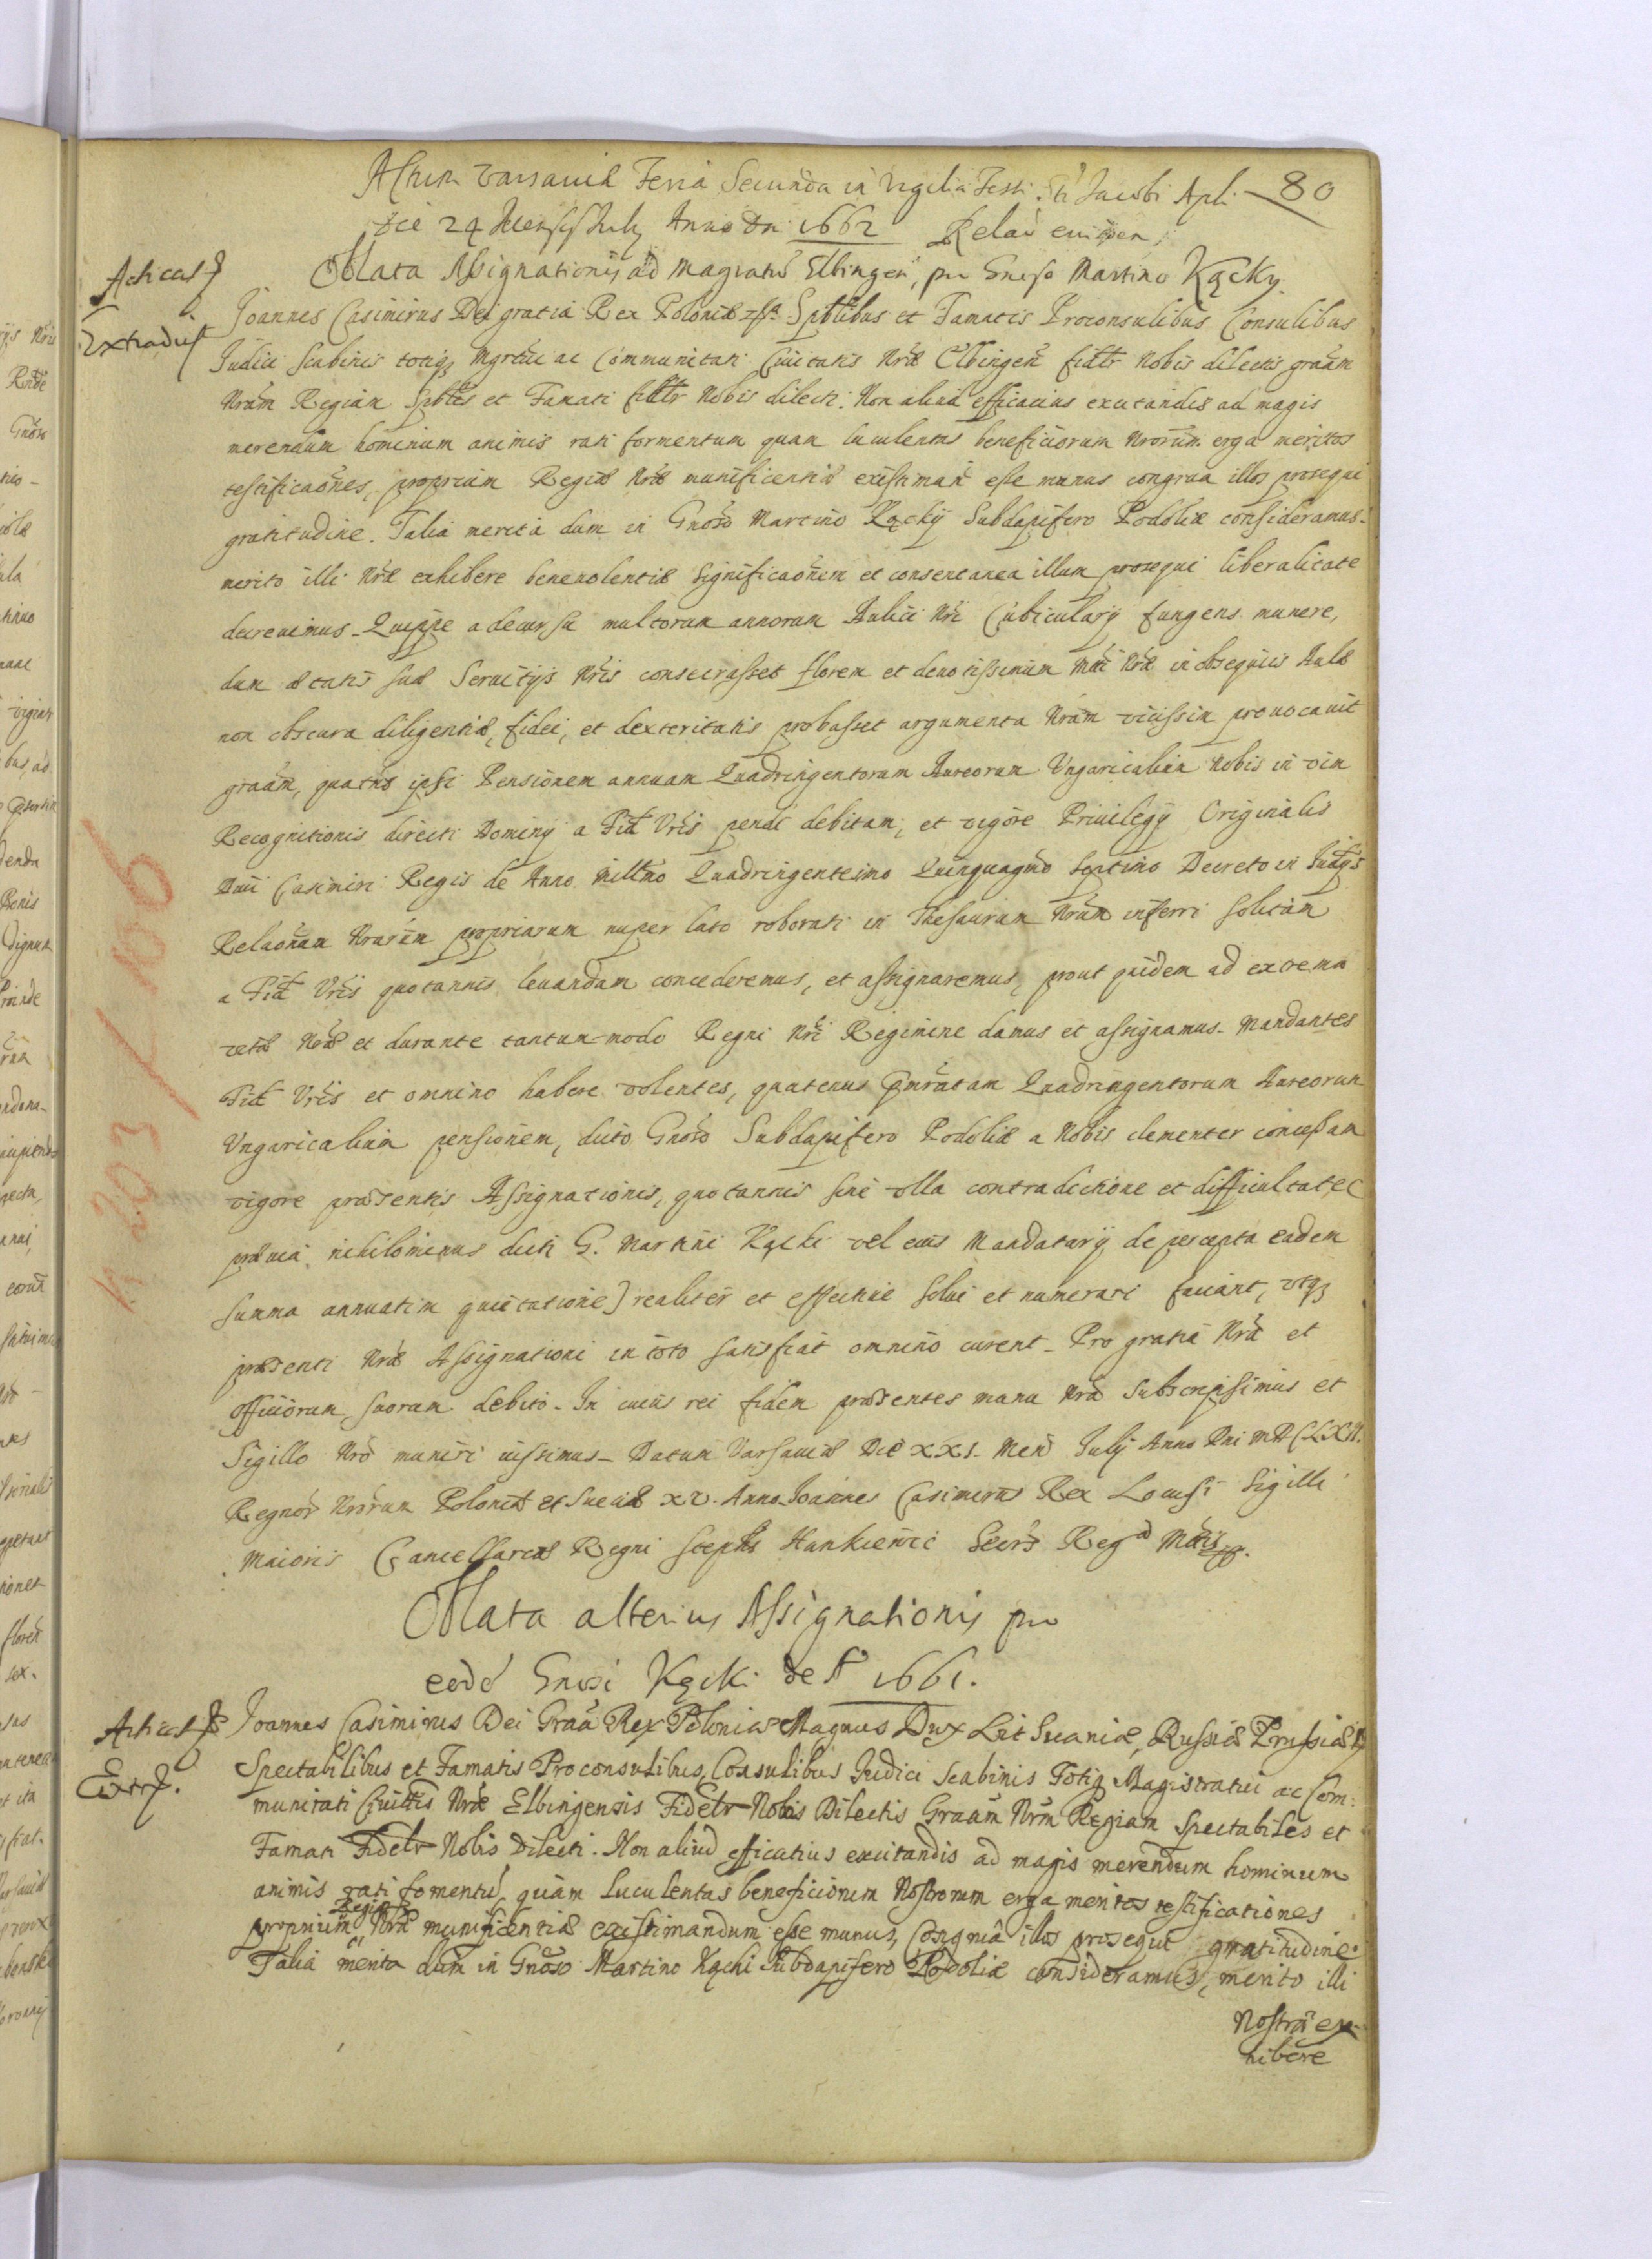 Actum Varsaviæ Feria Secunda in Vigilia Festi Sti Jacobi Apli. 80
Die 24 Mensis July Anno Dni 1662
Oblata Assignationis ad Magratū Elbingeń, pro Gnoso Martino Kącky.
Acticat
Joannes Casimirus Dei gratia Rex Poloniæ Sptlibus et Famatis Proconsulibus Consulibus
Extradit
Judici Scabinis totiq Mgrtui ac Communitati Civitatis Nræ Elbingeń fidlr Nobis dilectis graám
Nrām Regiām Spbles et Famati fidlr Nobis dilecti. Non aliud efficacius excitandis ad magis
merendum hominum animis rati formentum quam luculentas beneficiorum Nrorum erga meritos
testificaōnes, proprium Regiæ Nræ munificentiæ existimań esse munus congrua illos prosequi
gratitudine. Talia merita dum in Gnoso Martino Kącky Subdapifero Podoliæ consideramus.
merito illi Nræ exhibere benevolentiæ significaōnem et consentanea illum prosequi liberalitate
decrevimus. Quippe a decursu multorum annorum Aulici Nri Cubicularij fungens munere,
dum ætatis suæ Servitijs Nris consecrasset florem et devotissimum Mti Nræ in obsequiis Aulæ
non obscura diligentiæ, fidei, et dexteritatis probasset argumenta Nrām vicissim provocavit
graām, quatns ipsi Pensionem annuam Quadringentorum Aureorum Ungaricalium Nobis in vim
Recognitionis directi Dominij a Fid Vris pendi debitam, et vigore Privilegij Originalis
Divi Casimiri Regis de Anno Millmo Quadringentesimo Quinquagmo Septimo Decreto in Judijs
Relaōnum Nrarum propriarum nuper lato roborati in Thesaurum Nrum inferri solitam
a Fid Vris quotannis levandam concederemus, et assignaremus, prout quidem ad extrema
vitæ Nræ et durante tantum-modo Regni Nri Regimine damus et assignamus. Mandantes
Fid Vris et omnino habere volentes, quatenus Pmratam Quadringentorum Aureorum
Ungaricalium pensionem, dicto Gnoso Subdapifero Podoliæ a Nobis clementer concessam
vigore præsentis Assignationis, quotannis sine ulla contradictione et difficultate (
prævia nihilominus dicti G. Martini Kącki vel eius Mandatarij de percepta eadem
summa annuatim quietatione) realiter et effective solvi et numerari faciant, utq
præsenti Nræ Assignationi in toto satisfiat omnino curent. Pro gratia Nra et
officiorum suorum debito. In cuius rei fidem præsentes manu Nra subscripsimus et
Sigillo Nro muniri iussimus. Datum Varsaviæ Die XXI. Mens July Anno Dni MDCLXII.
Regnor Nrorum Poloniæ et Sueciæ XV. Anno Joannes Casimirus Rex Locus Sigilli
Maioris Cancellariæ Regni Stephs Hankiewic Secrs Regæ Mtis.
Oblata alterius Assignationis pro
eodē Gnoso Kącki de A° 1661.
Acticat
Joannes Casimirus Dei Graā Rex Poloniæ Magnus Dux Litsuaniæ, Russiæ Prussiæ
Spectabilibus et Famatis Proconsulibus, Consulibus Judici Scabinis Totiq Magistratui ac Com:
Extr.
munitati Civittis Nræ Elbingensis Fidelr Nobis Dilectis Graām Nrm Regiam Spectabiles et
Famati Fidelr Nobis Dilecti. Non aliud efficatius excitandis ad magis merendum hominum
animis rati fomentū, quàm luculentas beneficiorum Nostrorum erga meritos testificationes
proprium Regiæ Nræ munificentiæ existimandum esse munus, Cōgruā illos prosequi gratitudine.
Talia merita dum in Gnoso Martino Kącki Subdapifero Podoliæ consideramus, merito illi
Nostræ ex-
hibere